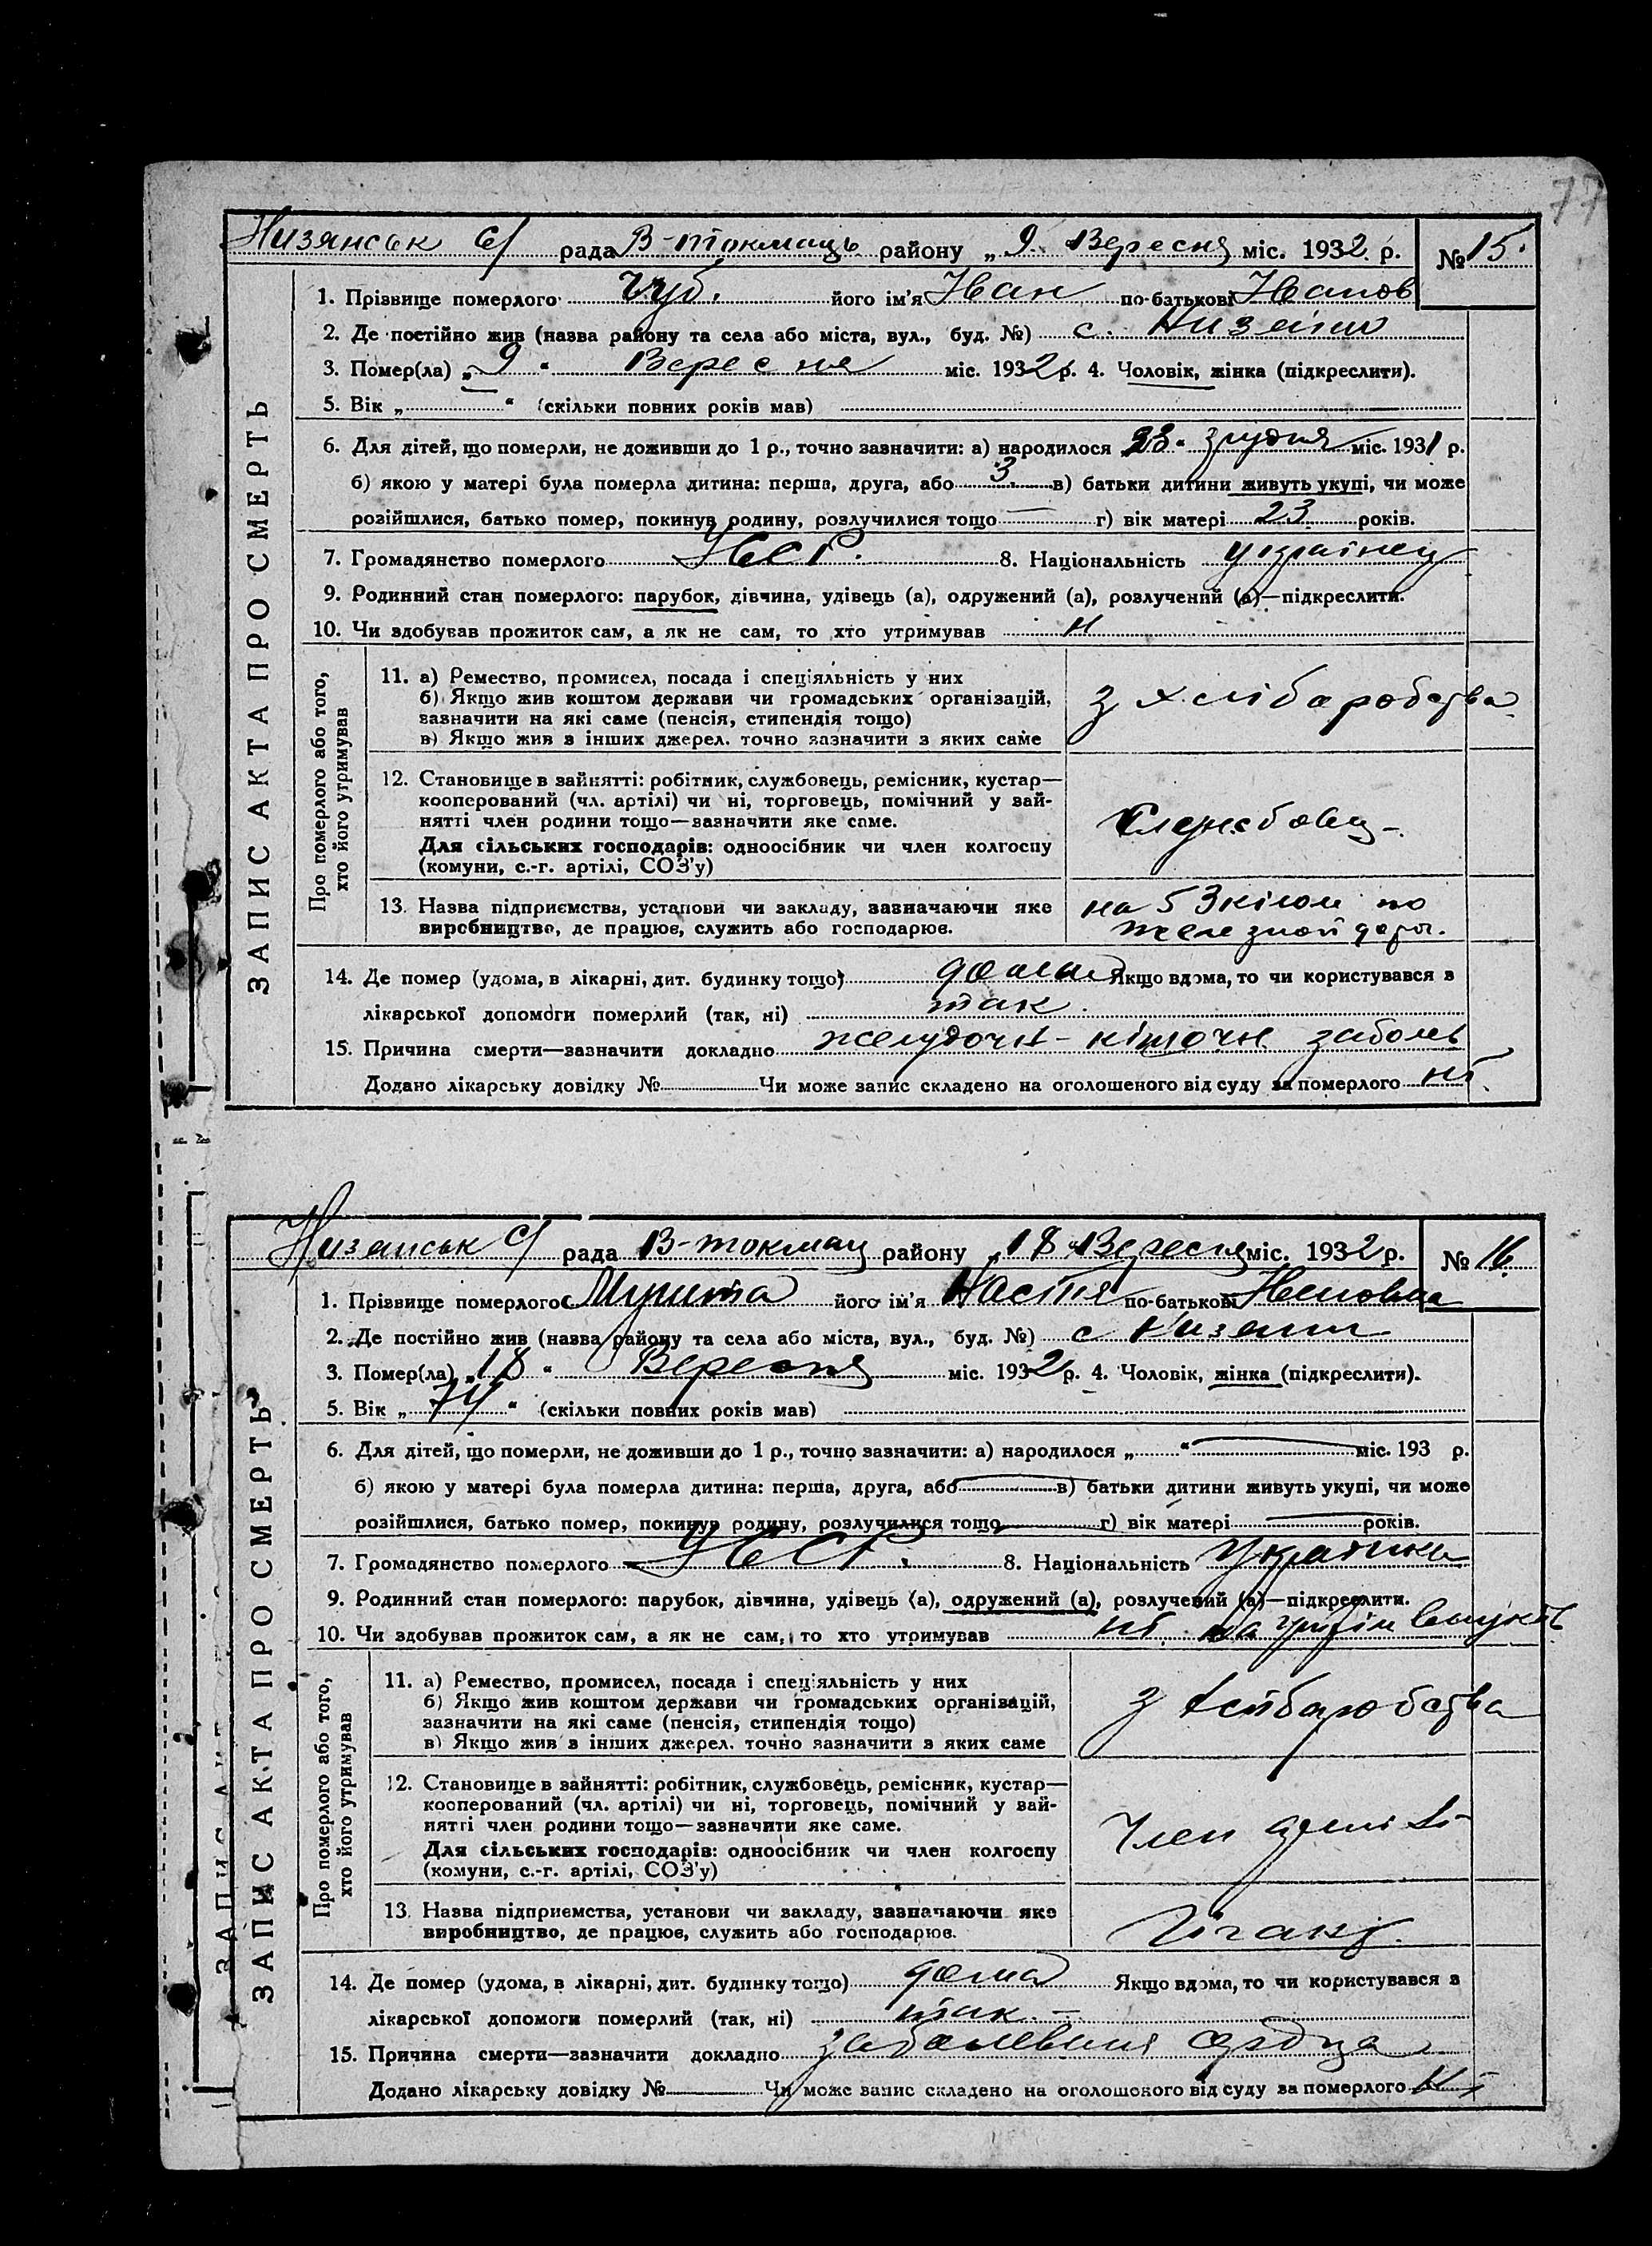 77
Низянськ с/ рада В-токмаць району „ 9 Вересня міс. 1932 р. № 15.
1. Прізвище померлого Чуб. його ім'я Иван по-батькові Иванов
2. Де постійно жив (назва району та села або міста, вул., буд. №) с. Низяни
3. Помер(ла) „ 9 “ Вересня міс. 1932 р. 4. Чоловік, жінка (підкреслити).
5. Вік „ “ (скільки повних років мав)
6. Для дітей, що померли, не доживши до 1 р., точно зазначити: а) народилося 23 “ грудня міс. 1931 р.
б) якою у матері була померла дитина: перша, друга, або 3. в) батьки дитини живуть укупі, чи може
розійшлися, батько помер, покинув родину, розлучилися тощо — г) вік матері 23 років.
7. Громадянство померлого УССР. 8. Національність українец
9. Родинний стан померлого: парубок, дівчина, удівець (а), одружений (а), розлучений (а)—підкреслити.
10. Чи здобував прожиток сам, а як не сам, то хто утримував н
ЗАПИС АКТА ПРО СМЕРТЬ
Про померлого або того, хто його утримував
11. а) Ремество, промисел, посада і спеціяльність у них
б) Якщо жив коштом держави чи громадських організацій,
зазначити на які саме (пенсія, стипендія тощо)
в) Якщо жив з інших джерел. точно зазначити з яких саме
з хлібаробства
12. Становище в зайнятті: робітник, службовець, ремісник, кустар—
кооперований (чл. артілі) чи ні, торговець, помічний у зай-
нятті член родини тощо—зазначити яке саме.
Для сільських господарів: одноосібник чи член колгоспу
(комуни, с.-г. артілі, СОЗ'у)
Службовец-
13. Назва підприємства, установи чи закладу, зазначаючи яке
виробництво, де працює, служить або господарює.
на 53 кілом по
железной доро.
14. Де помер (удома, в лікарні, дит. будинку тощо) дома Якщо вдома, то чи користувався з
лікарської допомоги померлий (так, ні) так.
15. Причина смерти—зазначити докладно желудочн-кішочн. заболев
Додано лікарську довідку № Чи може запис складено на оголошеного від суду за померлого ні.
Низянськ с/ рада В-токмац району „ 18 Вересня міс. 1932 р. № 16.
1. Прізвище померлого його ім'я Настя по-батькові
2. Де постійно жив (назва району та села або міста, вул., буд. №) с Низяни
3. Помер(ла) „ 18 “ Вересня міс. 1932 р. 4. Чоловік, жінка (підкреслити).
5. Вік „ 74 “ (скільки повних років мав)
6. Для дітей, що померли, не доживши до 1 р., точно зазначити: а) народилося „ “ — міс. 193 р.
б) якою у матері була померла дитина: перша, друга, або — в) батьки дитини живуть укупі, чи може
розійшлися, батько помер, покинув родину, розлучилися тощо — г) вік матері — років.
7. Громадянство померлого УССР. 8. Національність Українка
9. Родинний стан померлого: парубок, дівчина, удівець (а), одружений (а), розлучений (а)—підкреслити.
10. Чи здобував прожиток сам, а як не сам, то хто утримував ні на
ЗАПИС АКТА ПРО СМЕРТЬ
Про померлого або того, хто його утримував
11. а) Ремество, промисел, посада і спеціяльність у них
б) Якщо жив коштом держави чи громадських організацій,
зазначити на які саме (пенсія, стипендія тощо)
в) Якщо жив з інших джерел. точно зазначити з яких саме
з хлібаробства
12. Становище в зайнятті: робітник, службовець, ремісник, кустар—
кооперований (чл. артілі) чи ні, торговець, помічний у зай-
нятті член родини тощо—зазначити яке саме.
Для сільських господарів: одноосібник чи член колгоспу
(комуни, с.-г. артілі, СОЗ'у)
Член артілі
13. Назва підприємства, установи чи закладу, зазначаючи яке
виробництво, де працює, служить або господарює.
14. Де помер (удома, в лікарні, дит. будинку тощо) дома Якщо вдома, то чи користувався з
лікарської допомоги померлий (так, ні) так —
15. Причина смерти—зазначити докладно заболевния сердца
Додано лікарську довідку № Чи може запис складено на оголошеного від суду за померлого ні